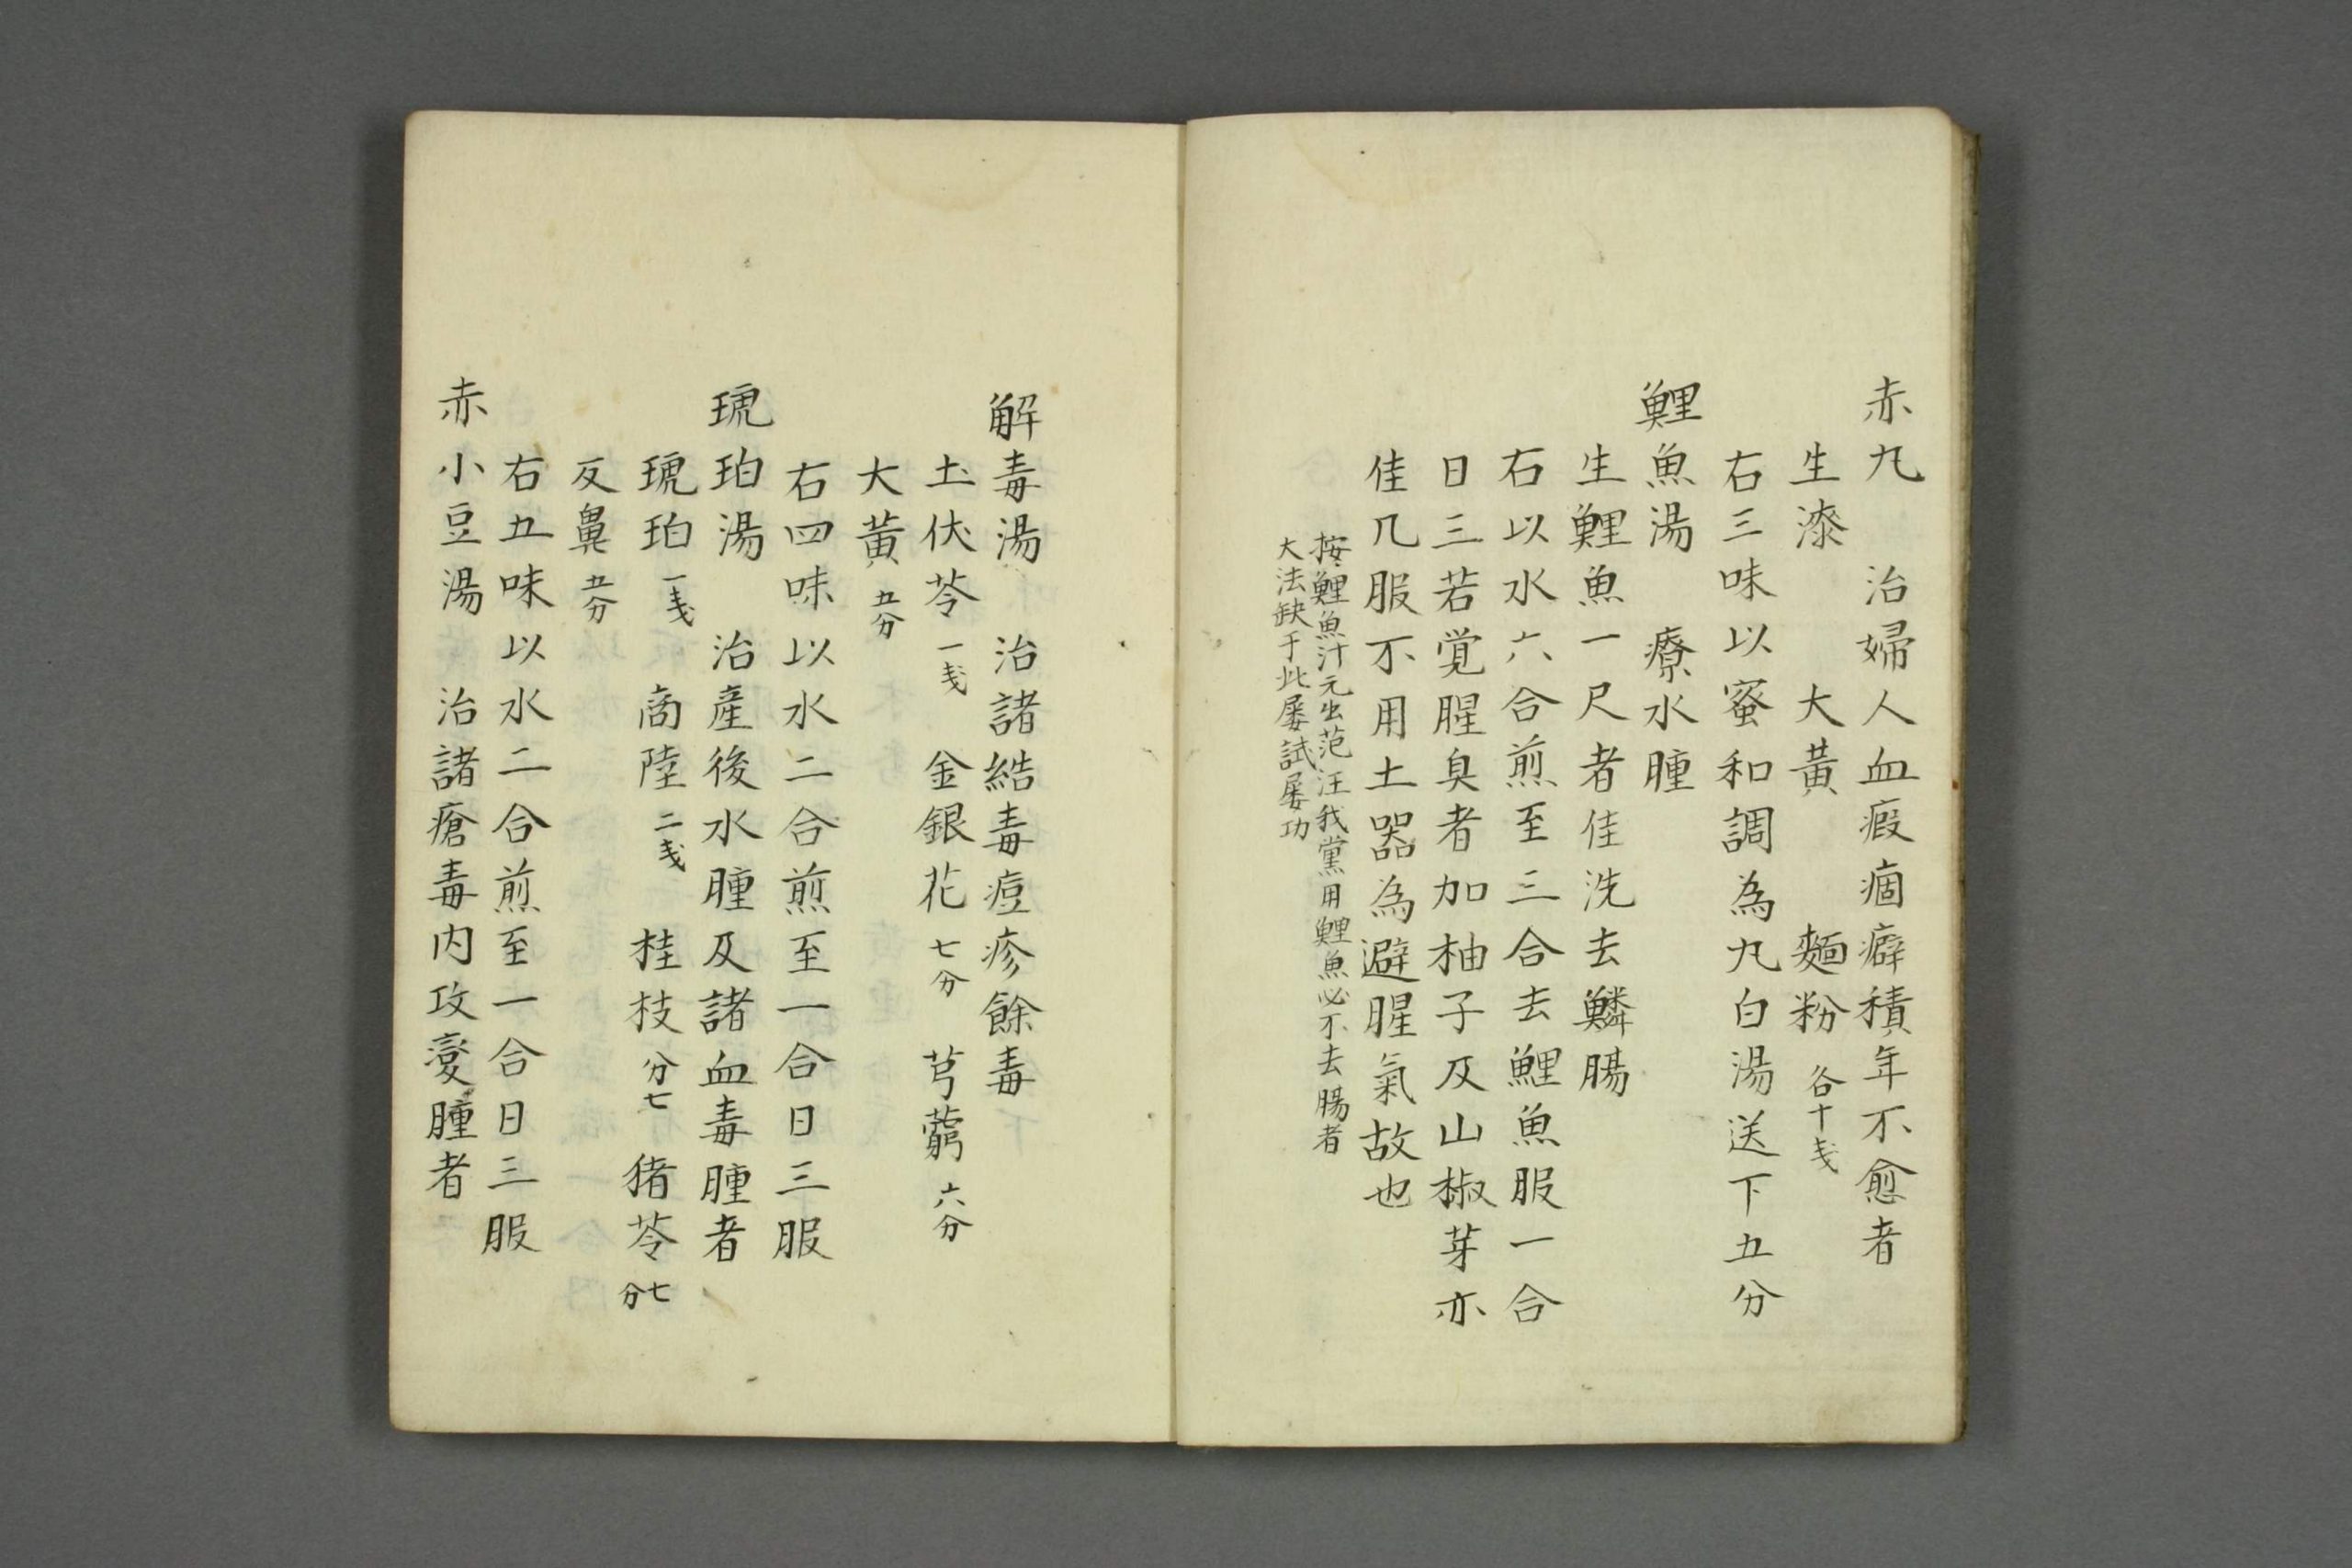 赤丸　治婦人血瘕痼癖積年不愈者
生漆　大黃　麺粉各十戔
右三味以蜜和調為丸白湯送下五分
鯉魚湯　療水腫
生鯉魚一尺者佳洗去鱗腸
右以水六合煎至三合去鯉魚服一合
日三若覚腥臭者加柚子及山椒芽亦
佳凡服不用土器為避腥氣故也
按鯉魚汁元出范汪我黨用鯉魚必不去腸者
大法缺于此屡試屡功
解毒湯　治諸結毒痘疹餘毒
土伏苓一戔　金銀花七分　芎藭六分
大黃五分
右四味以水二合煎至一合日三服
琥珀湯　治産後水腫及諸血毒腫者
琥珀一戔　商陸二戔　桂枝七分　猪苓七分
反鼻五分
右五味以水二合煎至一合日三服
赤小豆湯　治諸瘡毒内攻変腫者